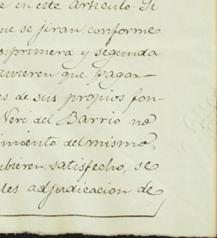 e en este articulo. Si
ue se jiran conforme
s, primera y segunda
uvieren que pagar-
es de sus propios fon-
Neri del Barrio no
imiento del mismo,
ubieren satisfecho, se
les adjudicacion de